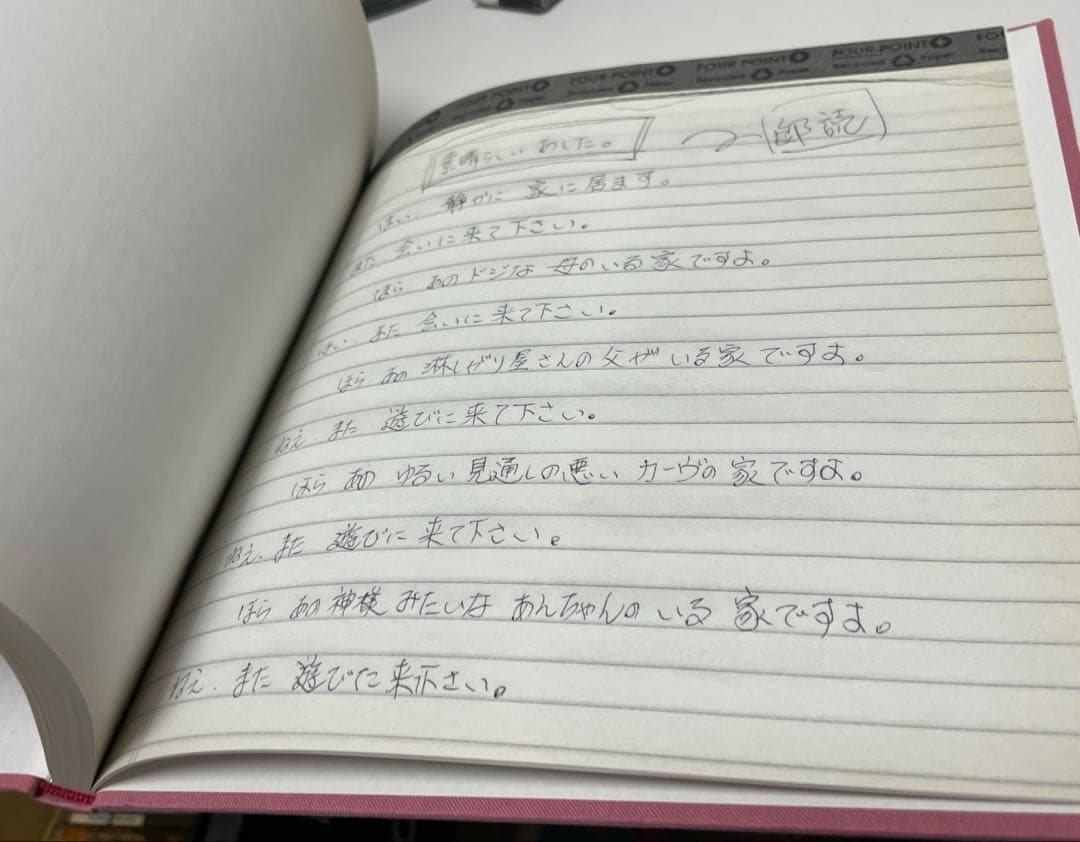 FOUR POINT FOUR POINT FOUR POINT FOUR POINT
Recycled Paper Recycled Paper Recycled Paper Recycled Paper
素晴らしい あした。 朗読
はい、静かに 家に居ます。
また、会いに来て下さい。
ほら あの ドジな 母のいる 家ですよ。
はい、また 会いに 来て下さい。
ほら あの 淋しがり屋さんの 父が いる 家 ですよ。
ねえ、また 遊びに来て下さい。
ほら あの ゆるい 見通しの悪い カーヴの 家ですよ。
ねえ、また 遊びに 来て下さい。
ほら あの 神様 みたいな あんちゃんの いる 家ですよ。
ねえ、また 遊びに 来下さい。